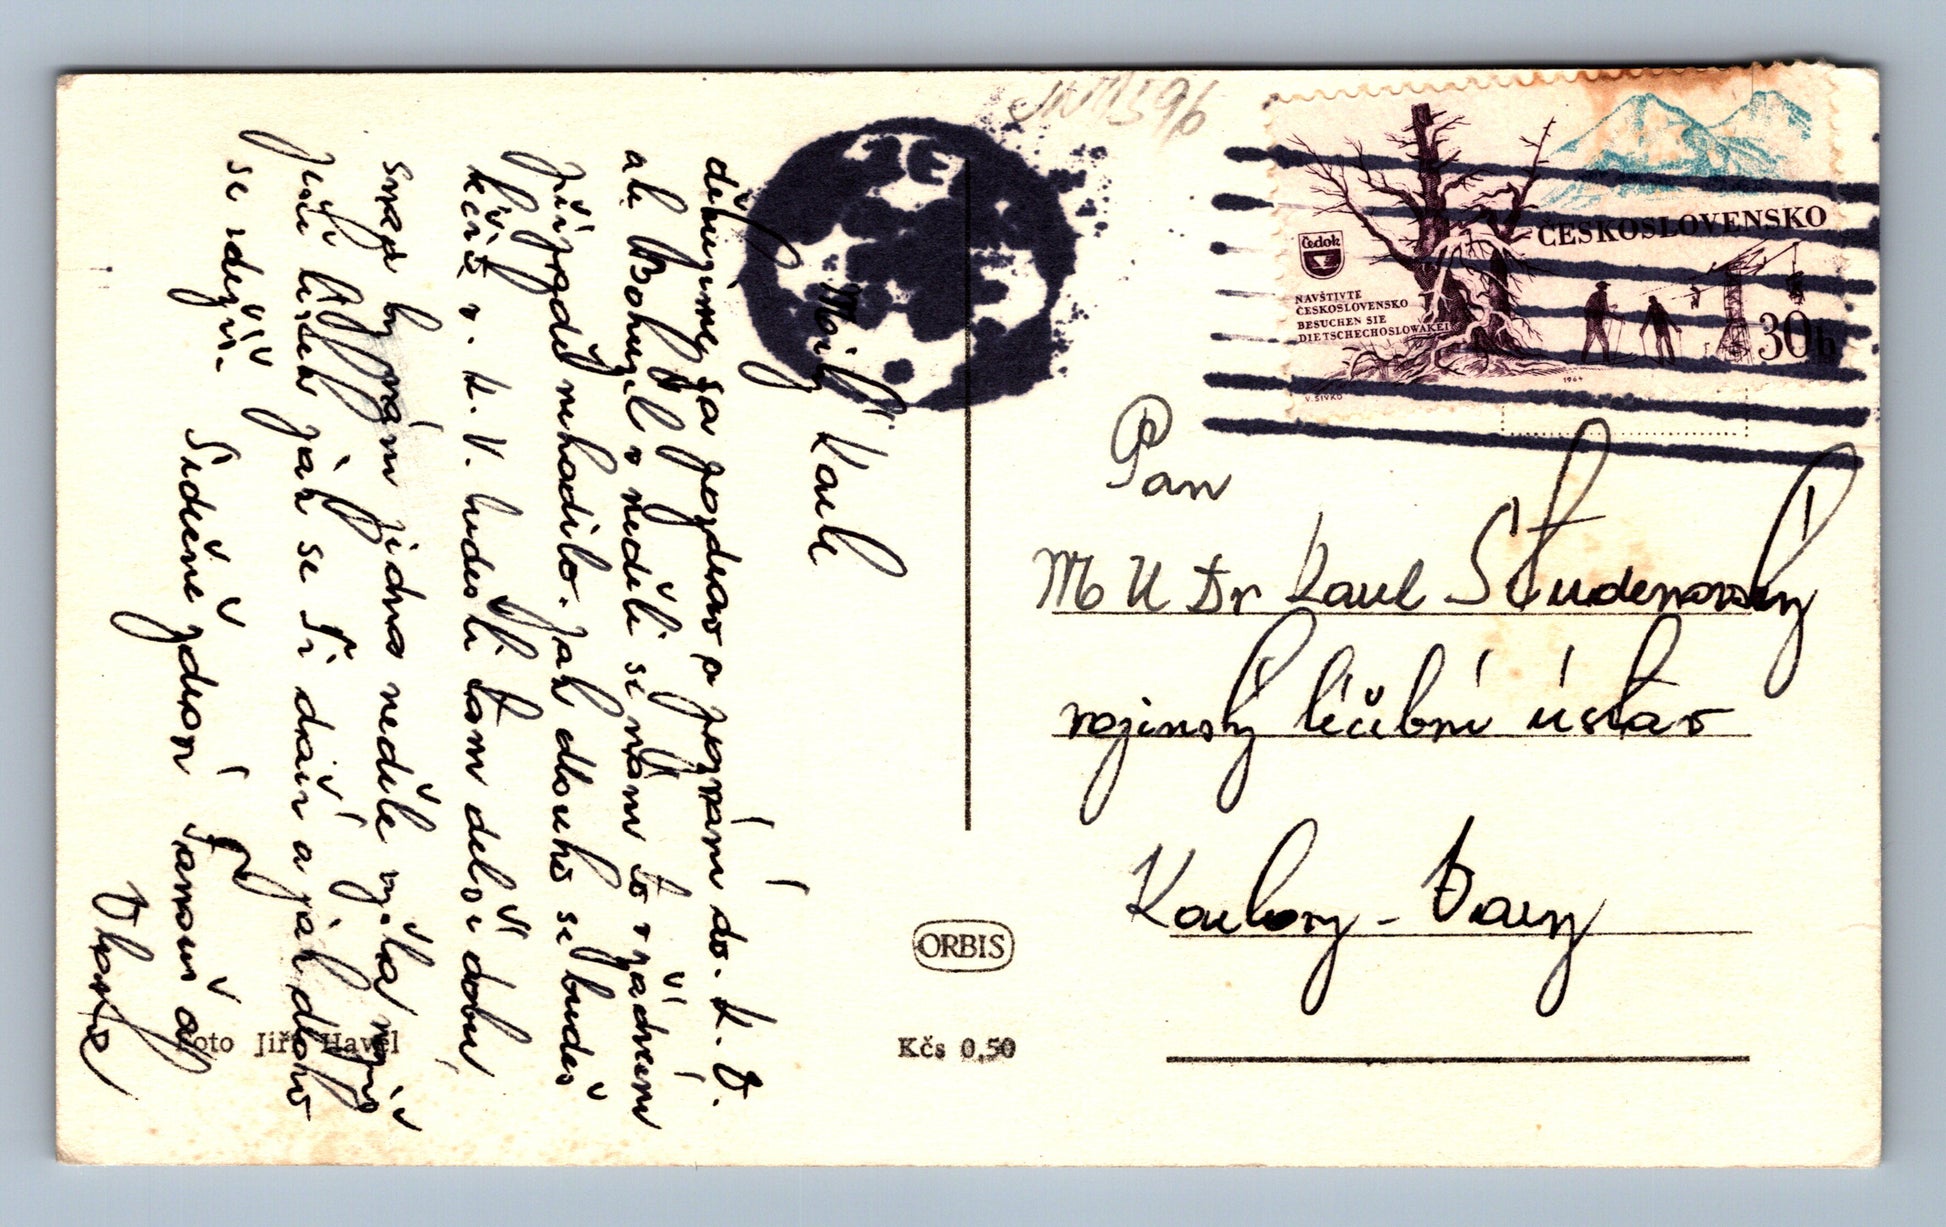 Milý Karle
děkujeme za pozdrav a pozvání do K. V.
ale Bohužel v neděli se nám to v žádném
případě nehodilo. Jak dlouho se budeš
léčit v K. V. budeš-li tam delší dobu
snad by nám jedna neděle vyšla
Jenli lístek jak se Ti daří a jak dlouho
se zdržíš.
Srdečně zdraví Tamouš a
Vlasta
Foto Jiří Havel
ORBIS
Kčs 0,50
Čedok
NAVŠTIVTE
ČESKOSLOVENSKO
BESUCHEN SIE
DIE TSCHECHOSLOWAKEI
ČESKOSLOVENSKO
30h
1964
V. SIVKO
Pan
MUDr Karel Studenovský
vojenský léčební ústav
Karlovy-Vary